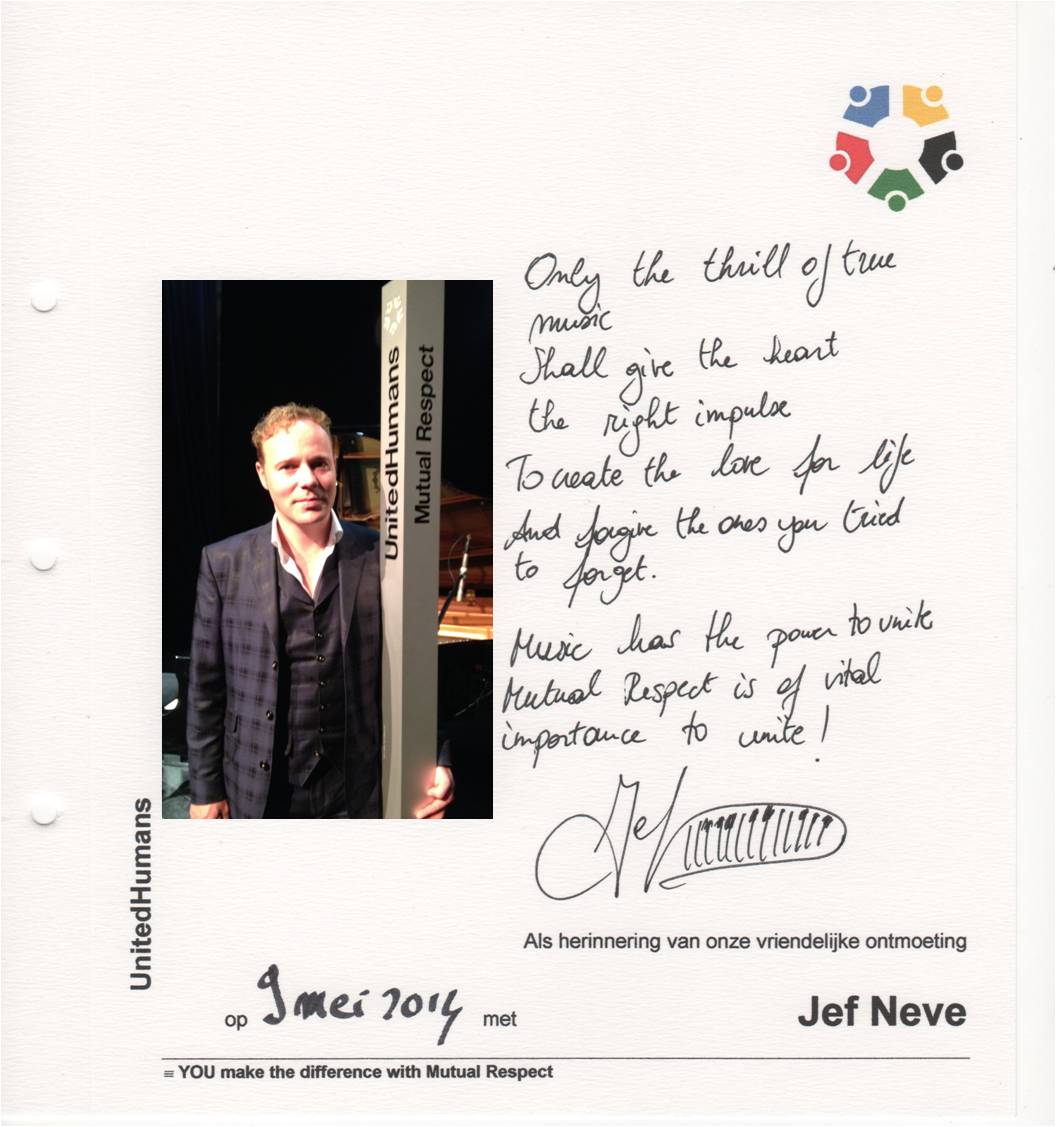 Only the thrill of true
music
Shall give the heart
the right impulse
To create the love for life
And forgive the ones you tried
to forget.
Music has the power to unite
Mutual Respect is of vital
importance to unite!
Jef
UnitedHumans
Mutual Respect
UnitedHumans
Als herinnering van onze vriendelijke ontmoeting
op 9 mei 2014 met
Jef Neve
≡ YOU make the difference with Mutual Respect